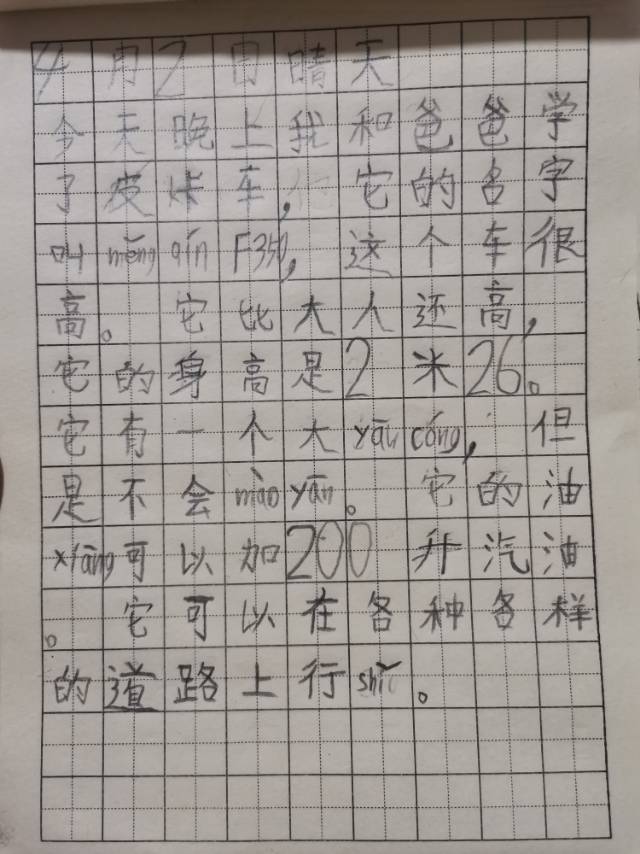 4月2日晴天
今天晚上我和爸爸学
了皮卡车，它的名字
叫měngqínF350，这个车很
高。它比大人还高，
它的身高是2米26。
它有一个大yāncóng，但
是不会màoyān。它的油
xiāng可以加200升汽油
。它可以在各种各样
的道路上行shǐ。